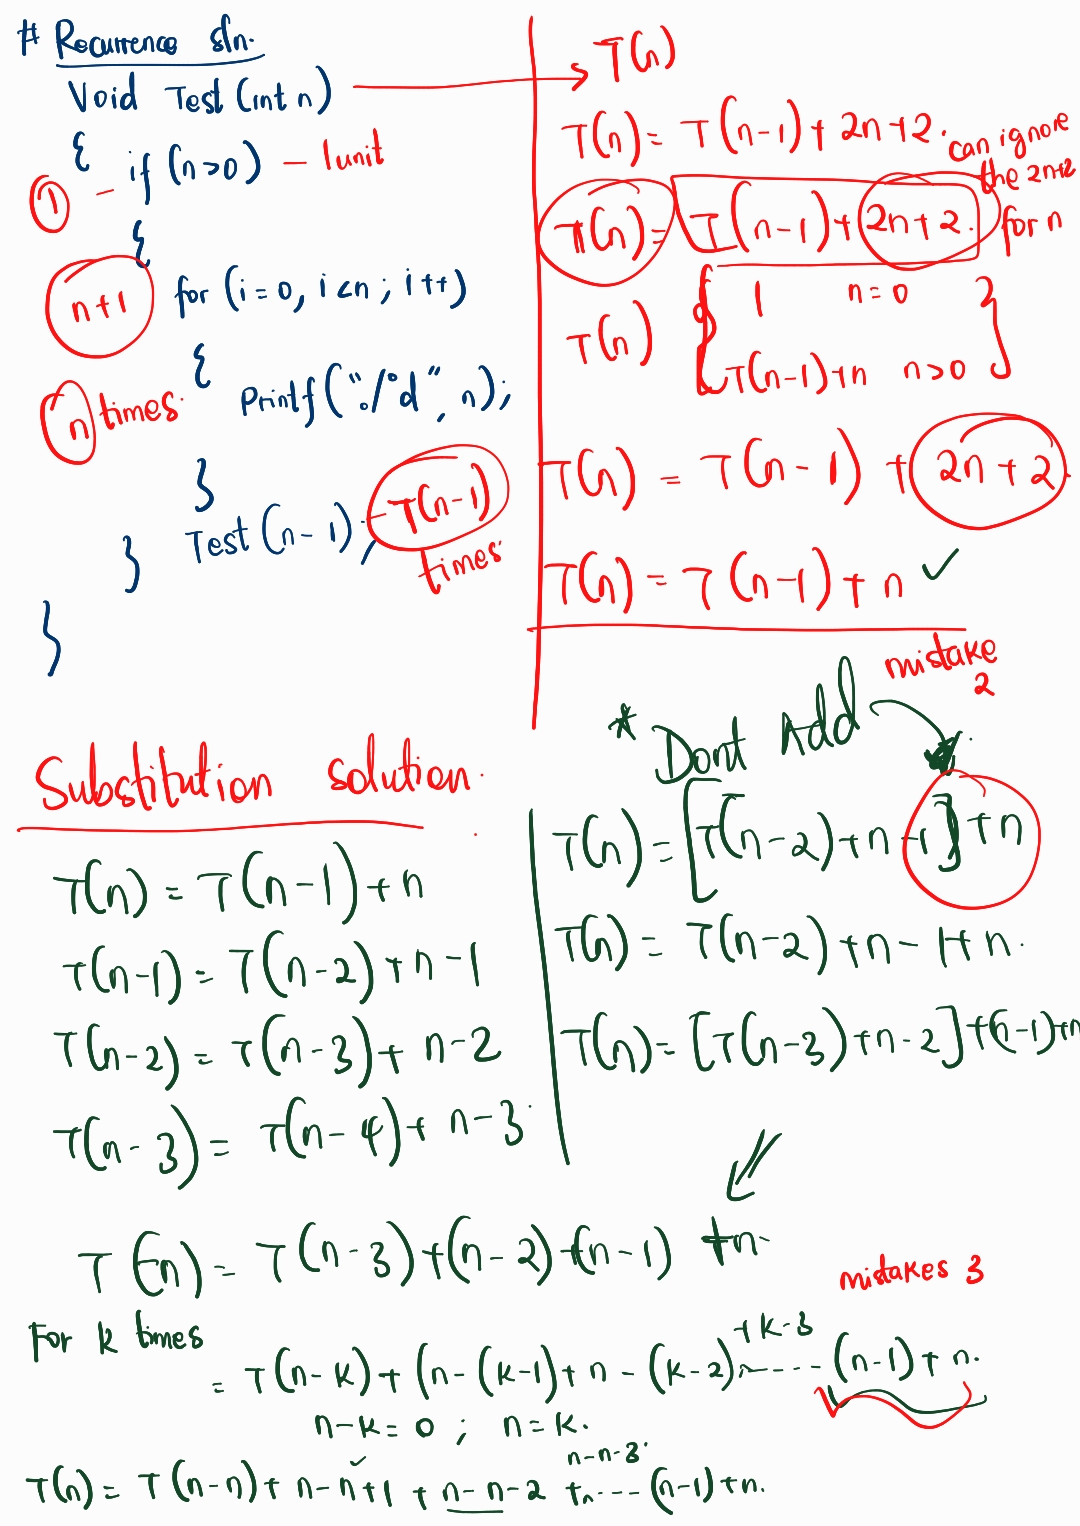 # Recurrence sln.
Void Test (int n)
{
① – if (n>0) – 1unit
{
n+1 for (i=0, i<n; i++)
{
n times. Printf ("%d", n);
}
Test (n-1); – T(n-1) times.
}
}
T(n)
T(n) = T(n-1) + 2n+2.
can ignore
the 2n+2
for n
T(n) = T(n-1) + 2n+2.
T(n) { 1 n=0 }
T(n-1)+n n>0
T(n) = T(n-1) + 2n+2
T(n) = T(n-1) + n ✓
mistake
2
* Dont Add
Substitution solution.
T(n) = T(n-1)+n
T(n-1) = T(n-2)+n-1
T(n-2) = T(n-3)+ n-2
T(n-3) = T(n-4)+ n-3
T(n) = [T(n-2)+n-1]+n
T(n) = T(n-2)+n-1+n.
T(n) = [T(n-3)+n-2]+(n-1)+n
T(n) = T(n-3)+(n-2)+(n-1) +n
mistakes 3
For k times
= T(n-k)+(n-(k-1)+n-(k-2) +k-3 ---- (n-1)+n.
n-k=0 ; n=k.
T(n) = T(n-n)+ n-n+1 + n-n-2 n-n-3 + ---- (n-1)+n.